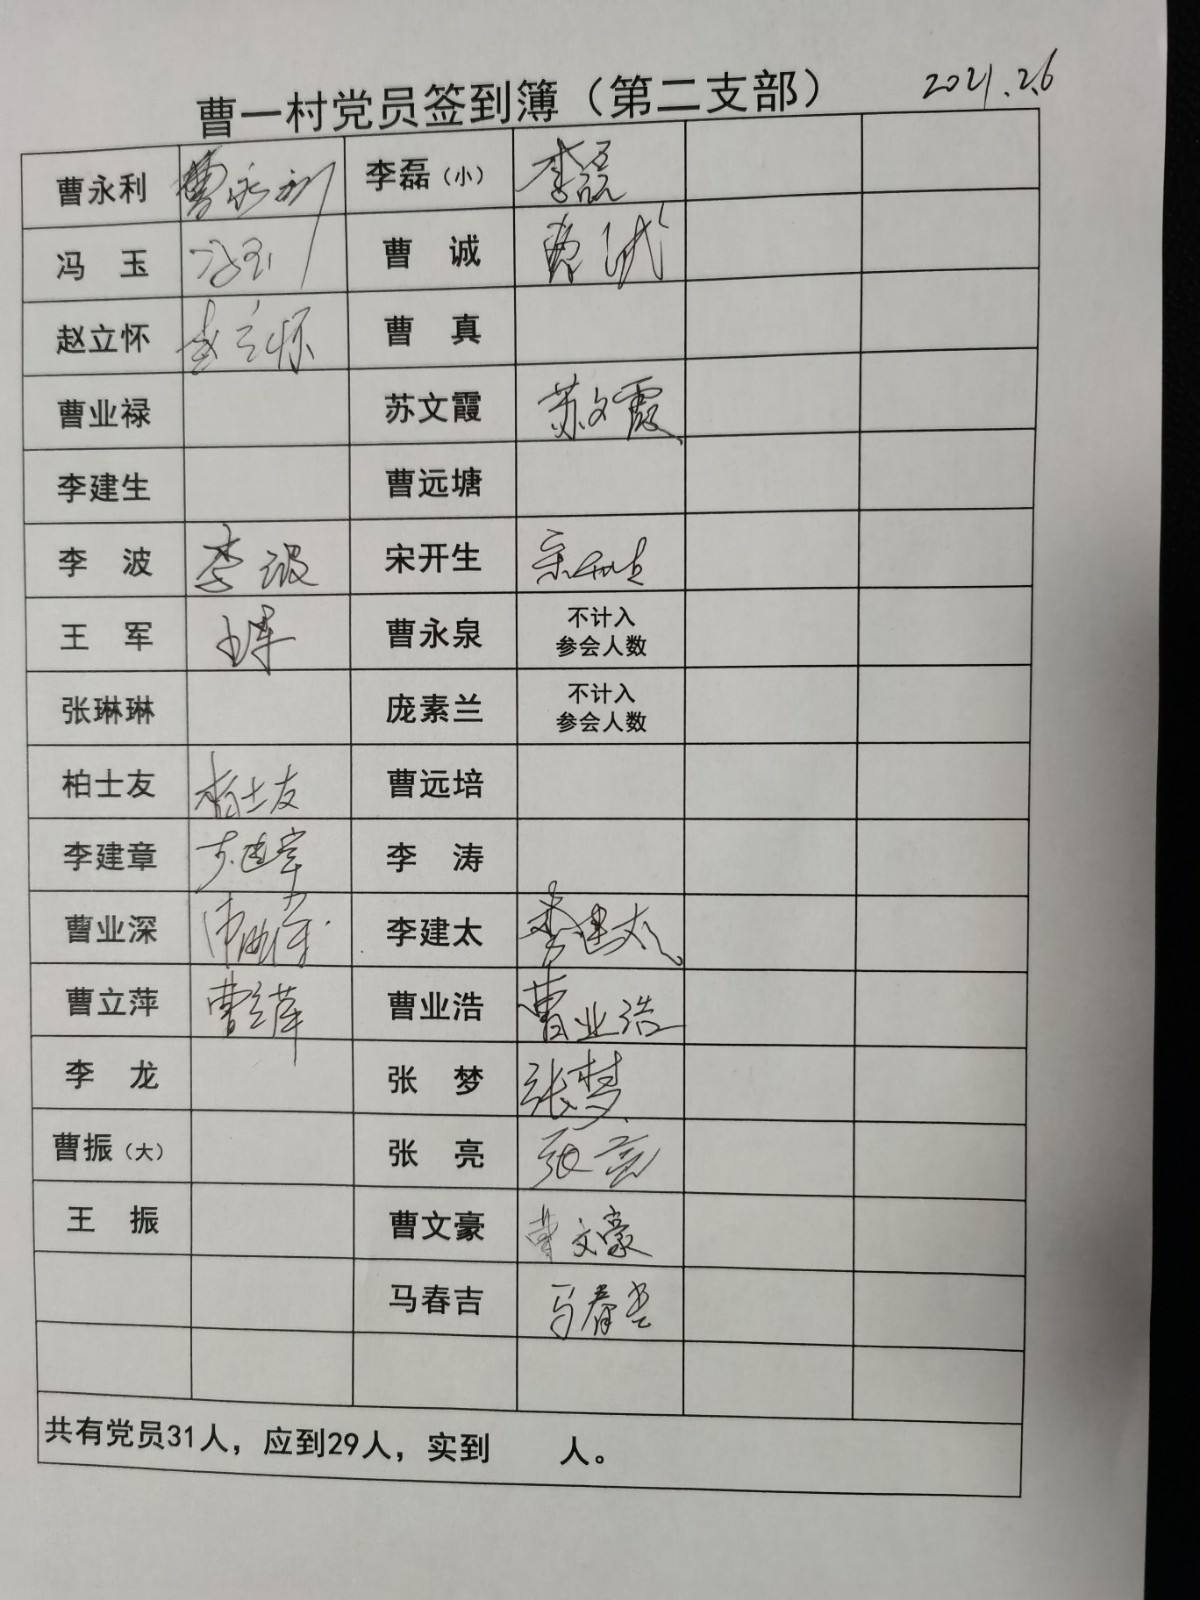 曹一村党员签到簿（第二支部） 2021.2.6
曹永利 曹永利 李磊（小） 李磊
冯 玉 冯玉 曹 诚 曹诚
赵立怀 赵立怀 曹 真
曹业禄 苏文霞 苏文霞
李建生 曹远塘
李 波 李波 宋开生 宋开生
王 军 王军 曹永泉 不计入
参会人数
张琳琳 庞素兰 不计入
参会人数
柏士友 柏士友 曹远培
李建章 李建章 李 涛
曹业深 李建太 李建太
曹立萍 曹立萍 曹业浩 曹业浩
李 龙 张 梦 张梦
曹振（大） 张 亮 张亮
王 振 曹文豪 曹文豪
马春吉 马春吉
共有党员31人，应到29人，实到 人。